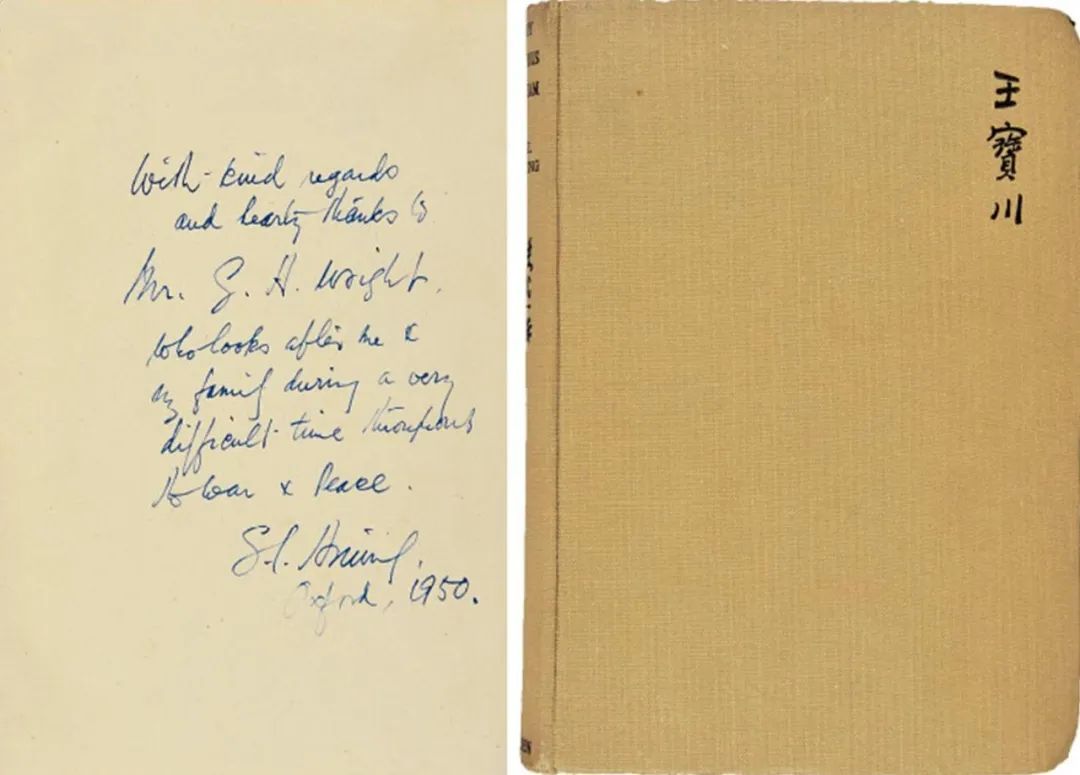 With kind regards
and hearty thanks to
Mr. G. H. Wright,
who looks after me &
my family during a very
difficult time throughout
the war & Peace.
S. I. Hsiung,
Oxford, 1950.
王寶川